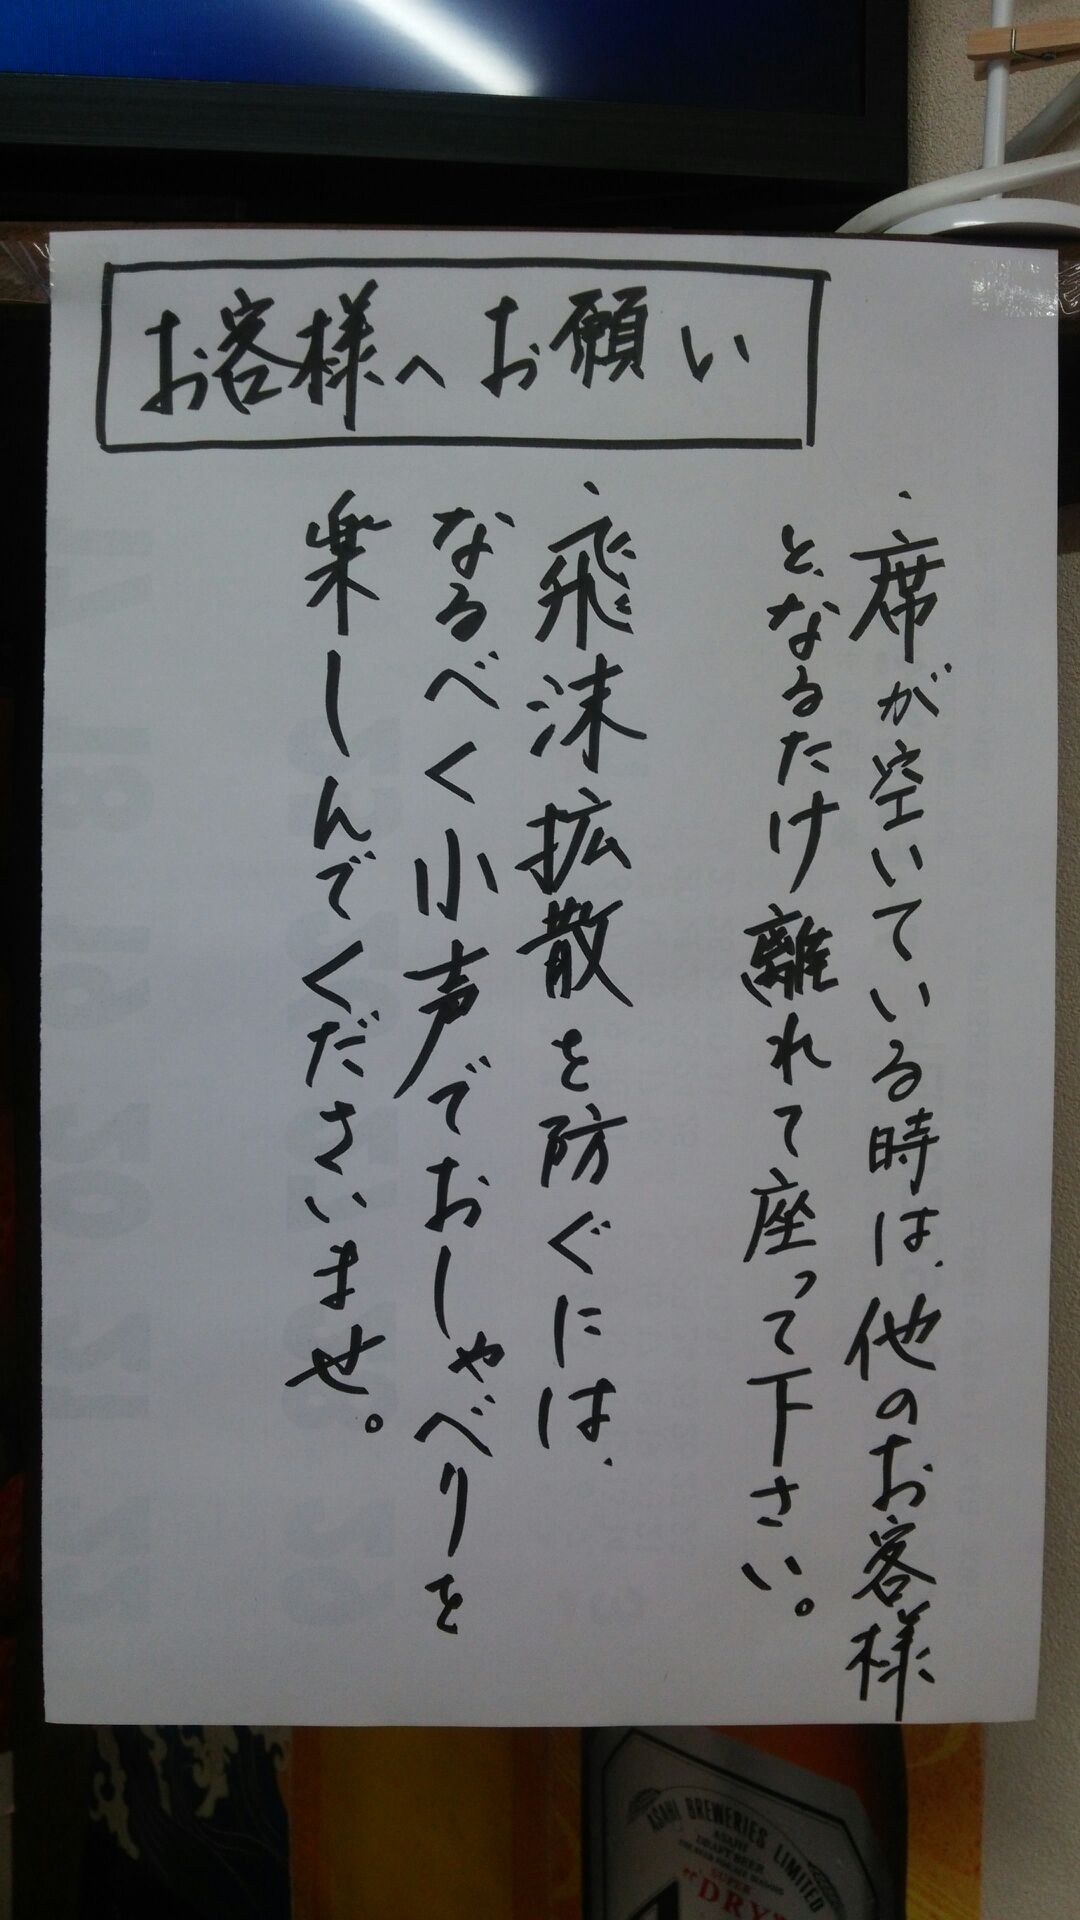 お客様へお願い
・席が空いている時は、他のお客様
と、なるたけ離れて座って下さい。
・飛沫拡散を防ぐには、
なるべく小声でおしゃべりを
楽しんでくださいませ。
ASAHI BREWERIES LIMITED
ASAHI
DRAFT BEER
SUPER
"DRY"